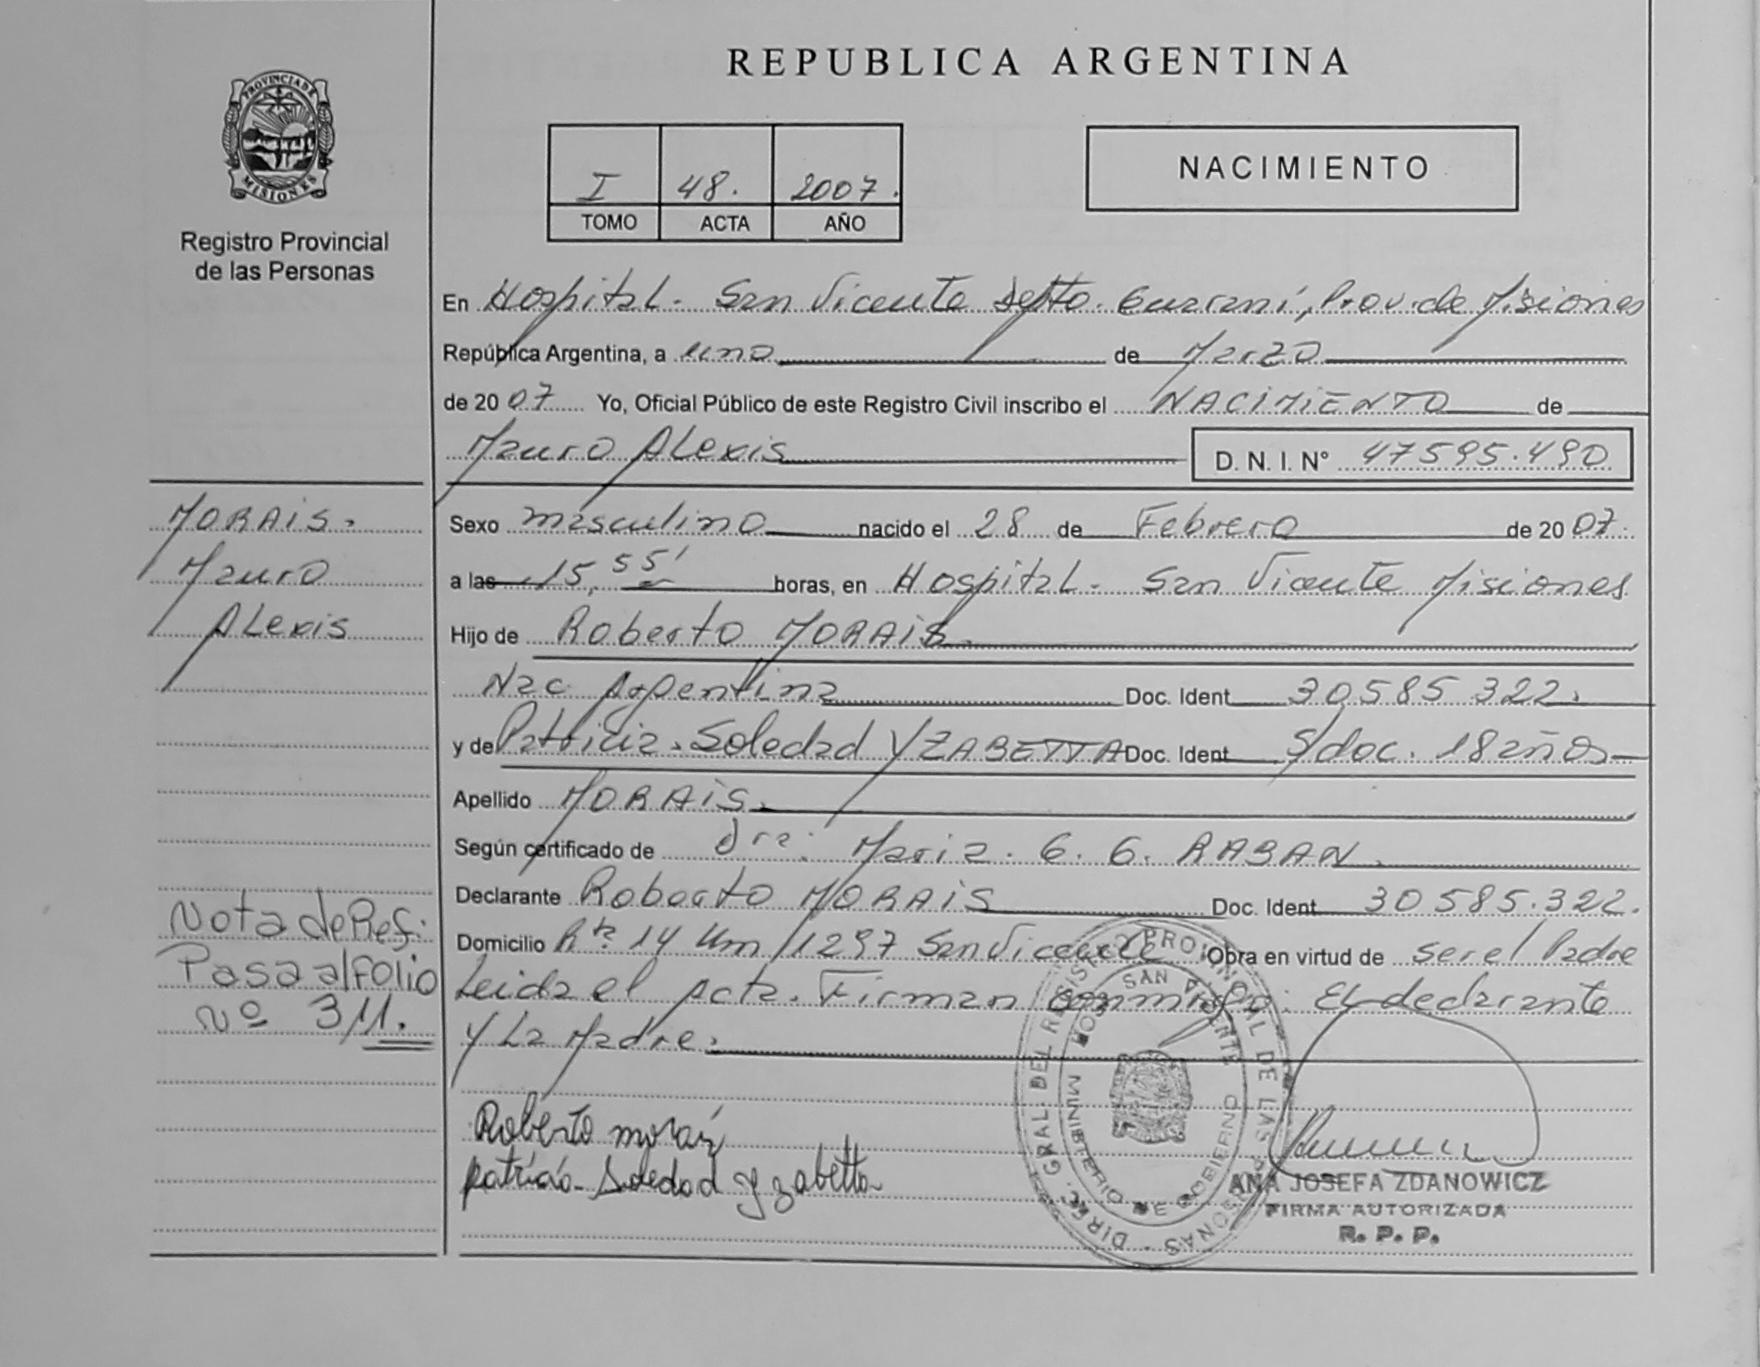 REPUBLICA ARGENTINA
PROVINCIA DE MISIONES
Registro Provincial
de las Personas
I 48. 2007.
TOMO ACTA AÑO
NACIMIENTO
En Hospital - San Vicente Depto. Guaraní, Prov. de Misiones
República Argentina, a uno de Marzo
de 2007 Yo, Oficial Público de este Registro Civil inscribo el NACIMIENTO de
Mauro Alexis D. N. I. N° 47595.490
MORAIS.
Mauro
Alexis
Sexo masculino nacido el 28 de Febrero de 2007.
a las 15,55' horas, en Hospital - San Vicente Misiones
Hijo de Roberto MORAIS
Nac Argentina Doc. Ident 30585322.
y de Patricia Soledad YZABETTA Doc. Ident S/doc. 18 años
Apellido MORAIS.
Según certificado de dra: Maria. G. G. RABAN.
Declarante Roberto MORAIS Doc. Ident 30585.322.
Domicilio Rta 14 Km 1297 San Vicente Obra en virtud de ser el Padre
Leida el acta. Firman conmigo: El declarante
y La Madre.
Nota de Ref:
Pasa al folio
Nº 311.
Roberto morais
patricia Soledad yzabetta
DIREC. GRAL. DEL REGISTRO PROVINCIAL DE LAS PERSONAS
HOSP. SAN VICENTE
MINISTERIO DE GOBIERNO
ANA JOSEFA ZDANOWICZ
FIRMA AUTORIZADA
R. P. P.